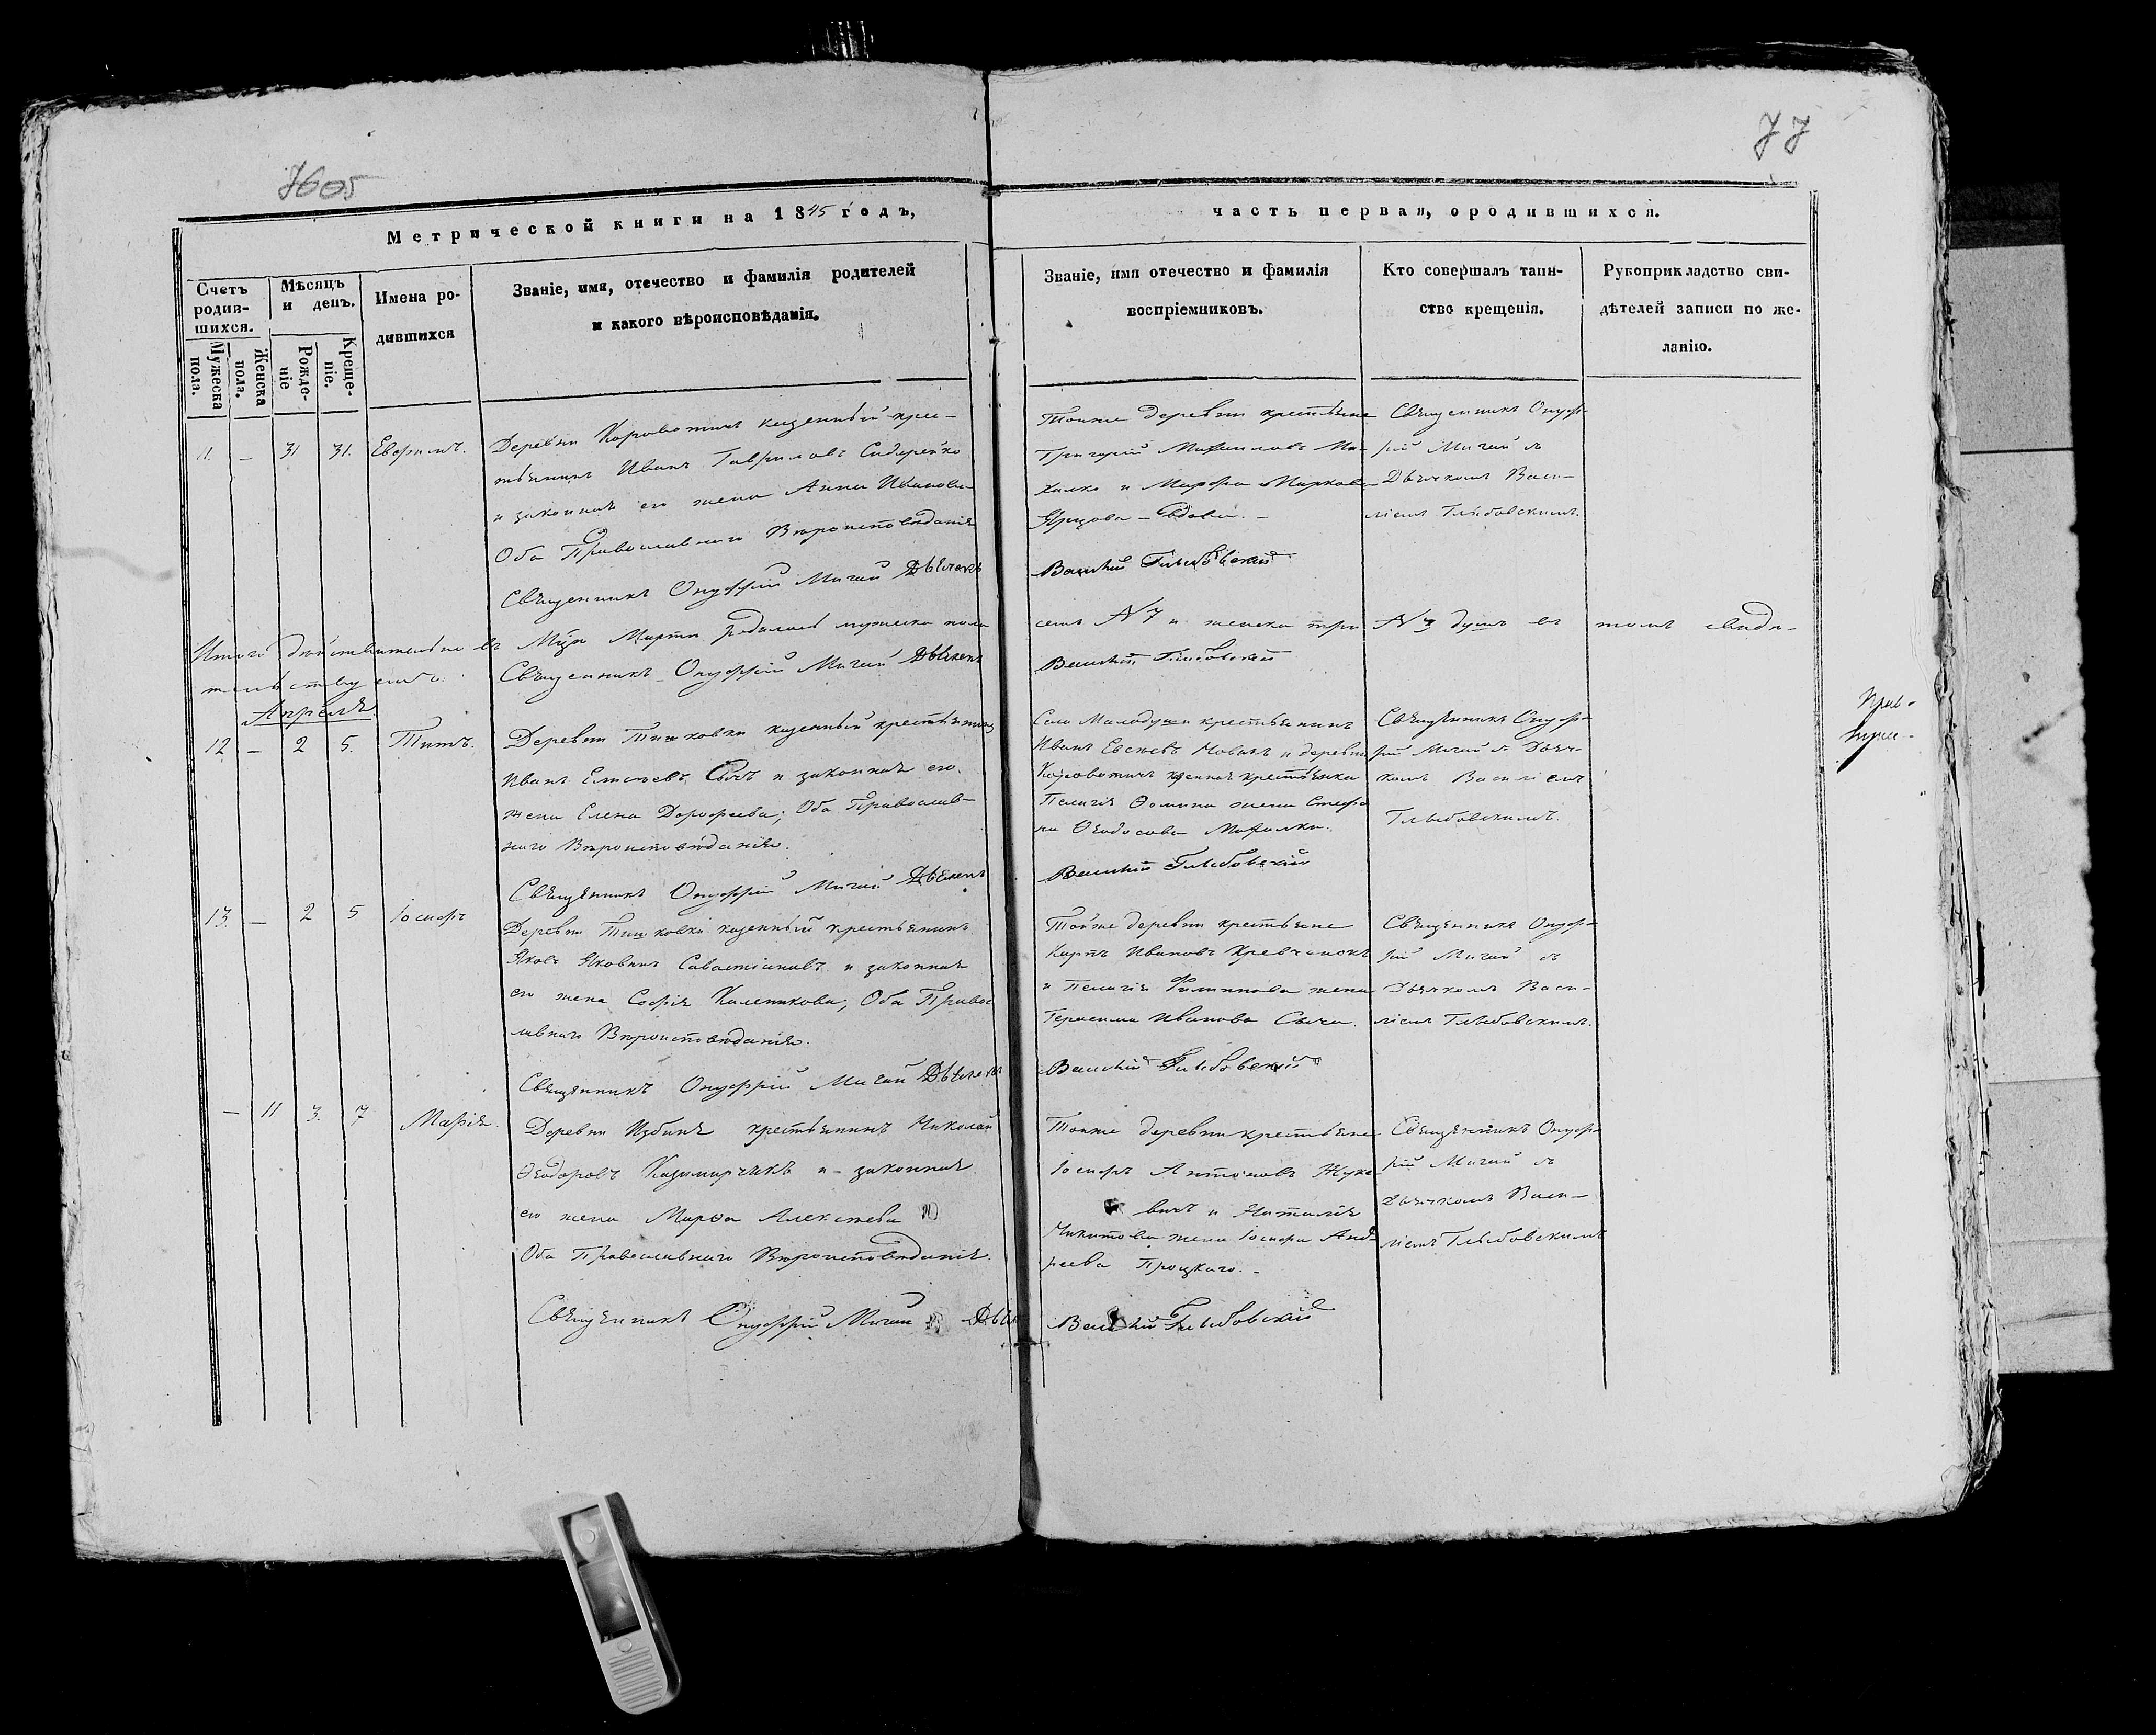 7605
77
Метрической книги на 1845 годъ,
часть первая, ородившихся.
Счетъ родив-шихся.
Мужеска пола.
Женска пола.
Мѣсяцъ и день.
Рожде-ніе
Креще-ніе.
Имена ро-дившихся
Званіе, имя, отечество и фамилія родителей
и какого вѣроисповѣданія.
Званіе, имя отечество и фамилія
воспріемниковъ.
Кто совершалъ таин-
ство крещенія.
Рукоприкладство сви-
дѣтелей записи по же-
ланію.
11. — 31 31.
Деревни казенный крес-
Иванъ Гавриловъ
и законная его жена Анна Иванова
Оба Православнаго Вѣроисповѣданія
Священникъ Онуфрій Мигай Дьячекъ
Тоиже деревни крестьяне
Григорій
и Марфа Маркова
вдова. —
Василій Глыбовскій
Священникъ Онуф-
рій Мигай съ
Дьячкомъ Васи-
ліемъ Глыбовскимъ.
Итого дѣйствительно въ Марта родилось мужеска пола семь №7 и женска три №3 душъ въ томъ свидѣ-
тельствуемъ: Священникъ Онуфрій Мигай Дьячекъ Василій Глыбовскій
Апреля
12 — 2 5. Титъ.
Деревни Тишковки казенный крестьянинъ
Иванъ Елисѣевъ Сычъ и законная его
жена Елена Дорофеева; Оба Православ-
наго Вѣроисповѣданія.
Священникъ Онуфрій Мигай Дьячекъ
Села Малодуши крестьянинъ
Иванъ Новакъ и деревни
крестьянка
Пелагія Ѳомина жена Стефа
на Ѳеодосова
Василій Глыбовскій
Священникъ Онуф-
рій Мигай съ Дьяч-
комъ Василіемъ
Глыбовскимъ.
13. — 2 5 Іосифъ
Деревни Тишковки казенный крестьянинъ
Яковъ Яковлевъ Савастіановъ и законная
его жена Софія Каленикова; Оба Правос
лавнаго Вѣроисповѣданія.
Священникъ Онуфрій Мигай Дьячекъ
Тойже деревни крестьяне
Карпъ Ивановъ
и Пелагія Филиппова жена
Герасима Иванова Сыча.
Василій Глыбовскій
Священникъ Онуф-
рій Мигай съ
Дьячкомъ Васи-
ліемъ Глыбовскимъ.
— 11 3. 7 Марія.
Деревни Избинъ крестьянинъ Николай
Ѳеодоровъ Казимирчикъ и законная
его жена Марѳа Алексѣева
Оба Православнаго Вѣроисповѣданія.
Священникъ Онуфрій Мигай
Тоиже деревни крестьяне
Іосифъ Антоновъ Жуке
вичъ и Наталія
Никитова жена Іосифа Анд-
реева Троцкаго. —
Василій Глыбовскій
Священникъ Онуф-
рій Мигай съ
Дьячкомъ Васи-
ліемъ Глыбовскимъ